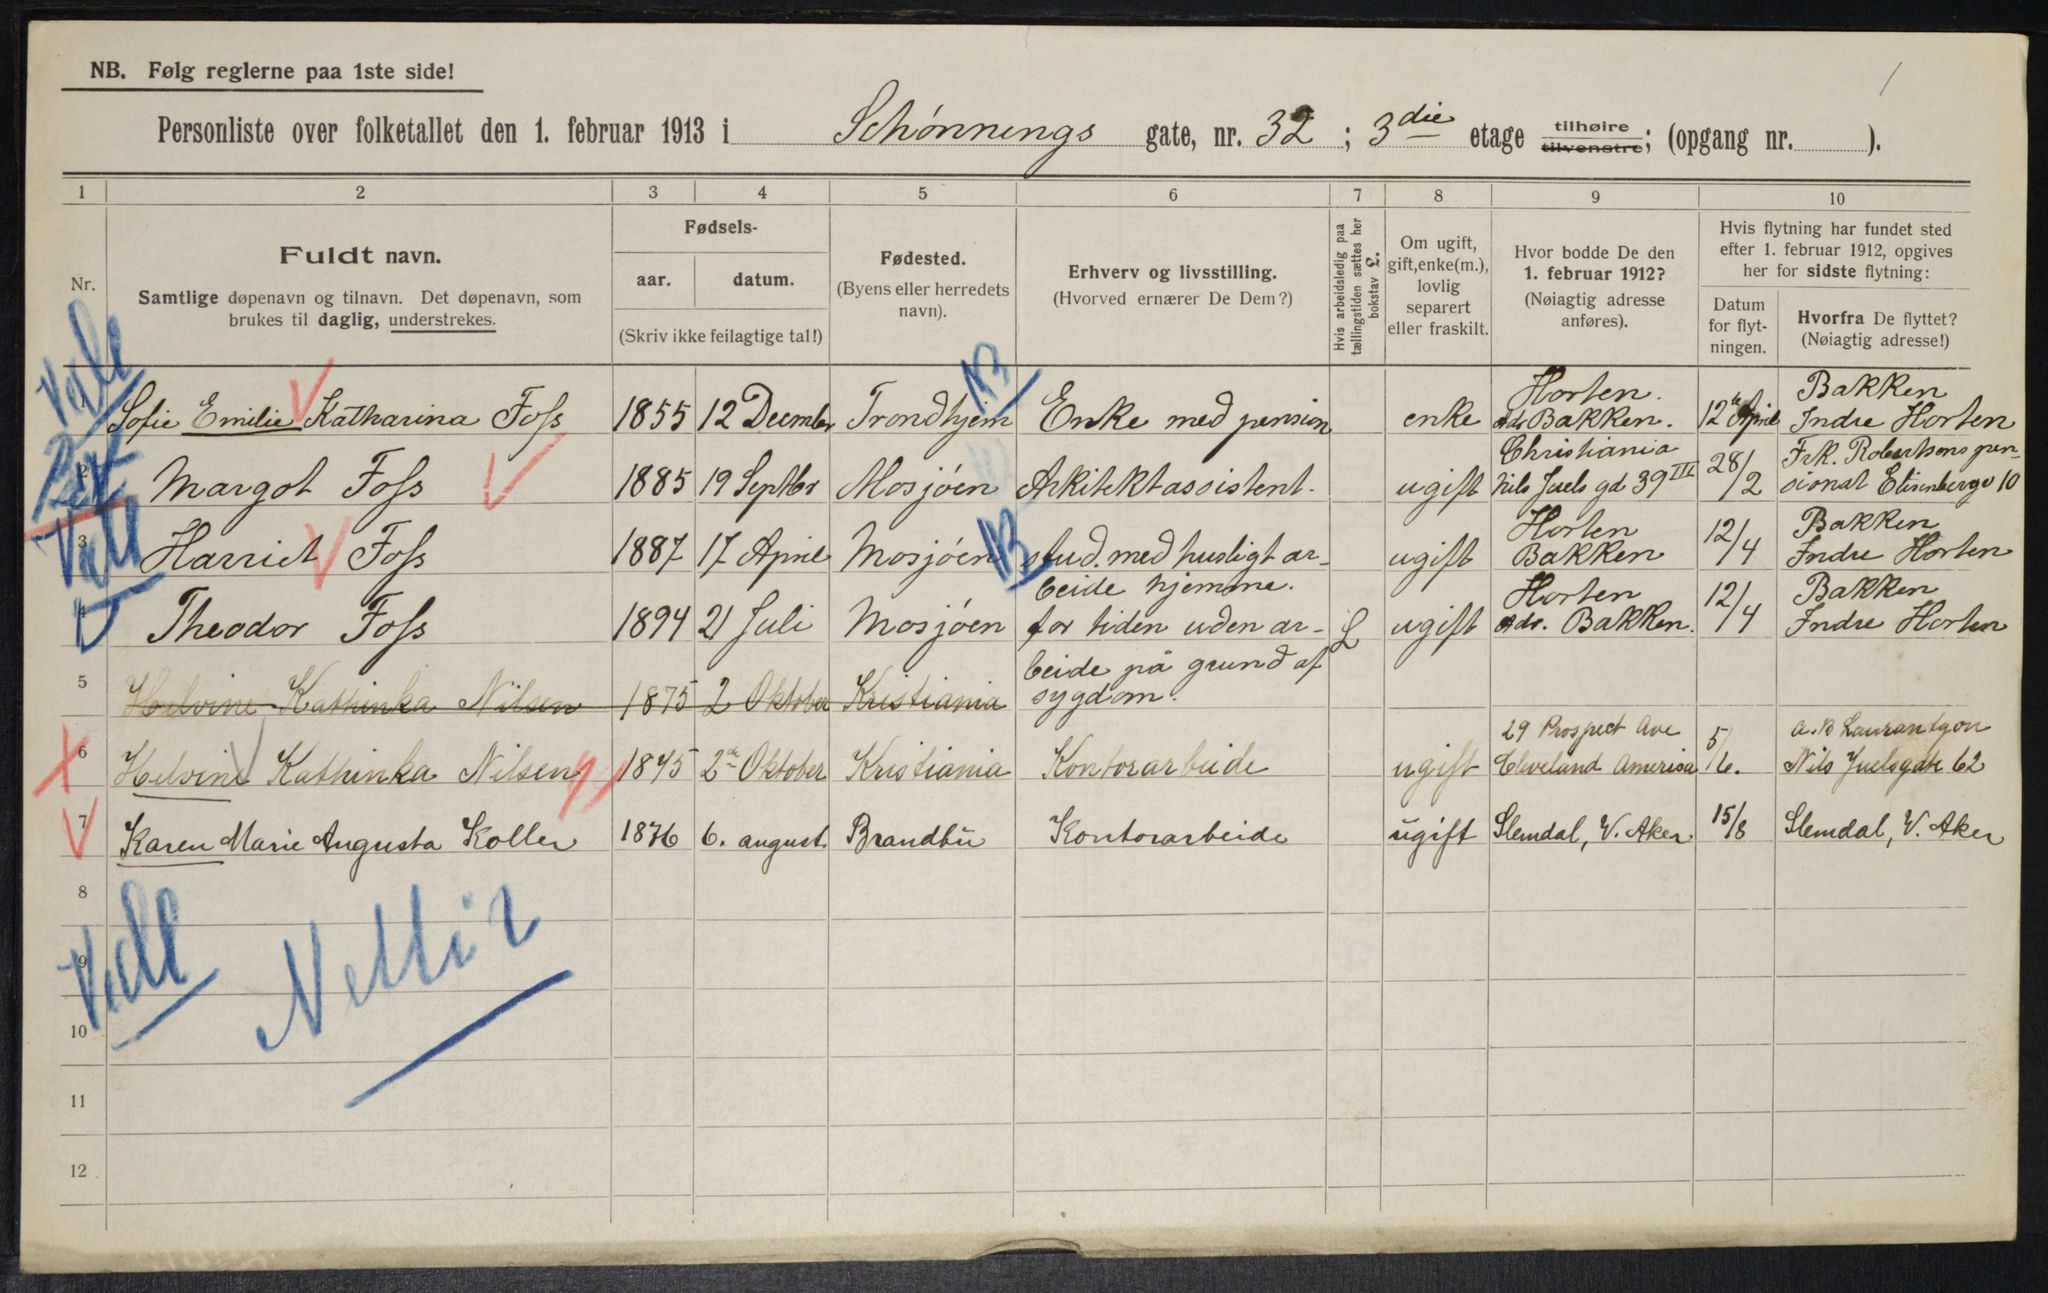 NB. Følg reglerne paa 1ste side!
Personliste over folketallet den 1. februar 1913 i Schønnings gate, nr. 32 ; 3die etage tilhøire tilvenstre; (opgang nr. ).
1 2 3 4 5 6 7 8 9 10
Nr.
Fuldt navn.
Samtlige døpenavn og tilnavn. Det døpenavn, som
brukes til daglig, understrekes.
Fødsels-
aar. datum.
(Skriv ikke feilagtige tal!)
Fødested.
(Byens eller herredets
navn).
Erhverv og livsstilling.
(Hvorved ernærer De Dem?)
Hvis arbeidsledig paa
tællingstiden sættes her
bokstav L.
Om ugift,
gift, enke(m.),
lovlig
separert
eller fraskilt.
Hvor bodde De den
1. februar 1912?
(Nøiagtig adresse
anføres).
Hvis flytning har fundet sted
efter 1. februar 1912, opgives
her for sidste flytning:
Datum
for flyt-
ningen.
Hvorfra De flyttet?
(Nøiagtig adresse!)
1 Sofie Emilie Katharina Foss 1855 12 December Trondhjem Enke med pension enke Horten. adr Bakken. 12te April Bakken Indre Horten
2 Margot Foss 1885 19 Septbr Mosjøen Arkitektassistent. ugift Christiania Nils Juels gd 39 III 28/2 Frk. Robertsons pen-
sionat Elisenbergv 10
3 Harriet Foss 1887 17 April Mosjøen stud. med husligt ar-
beide hjemme. ugift Horten Bakken 12/4 Bakken Indre Horten
4 Theodor Foss 1894 21 Juli Mosjøen for tiden uden ar-
beide på grund af
sygdom. L ugift Horten adr. Bakken. 12/4 Bakken Indre Horten
5 Helvine Kathinka Nilsen 1875 2 Oktober Kristiania
6 Helvine Kathinka Nilsen 1845 2de Oktober Kristiania Kontorarbeide ugift 29 Prospect Ave Cleveland America 5/6. Nils Juelsgate 62
7 Karen Marie Augusta Koller 1876 6. august. Brandbu Kontorarbeide ugift Slemdal, V. Aker 15/8 Slemdal, V. Aker
8
9
10
11
12